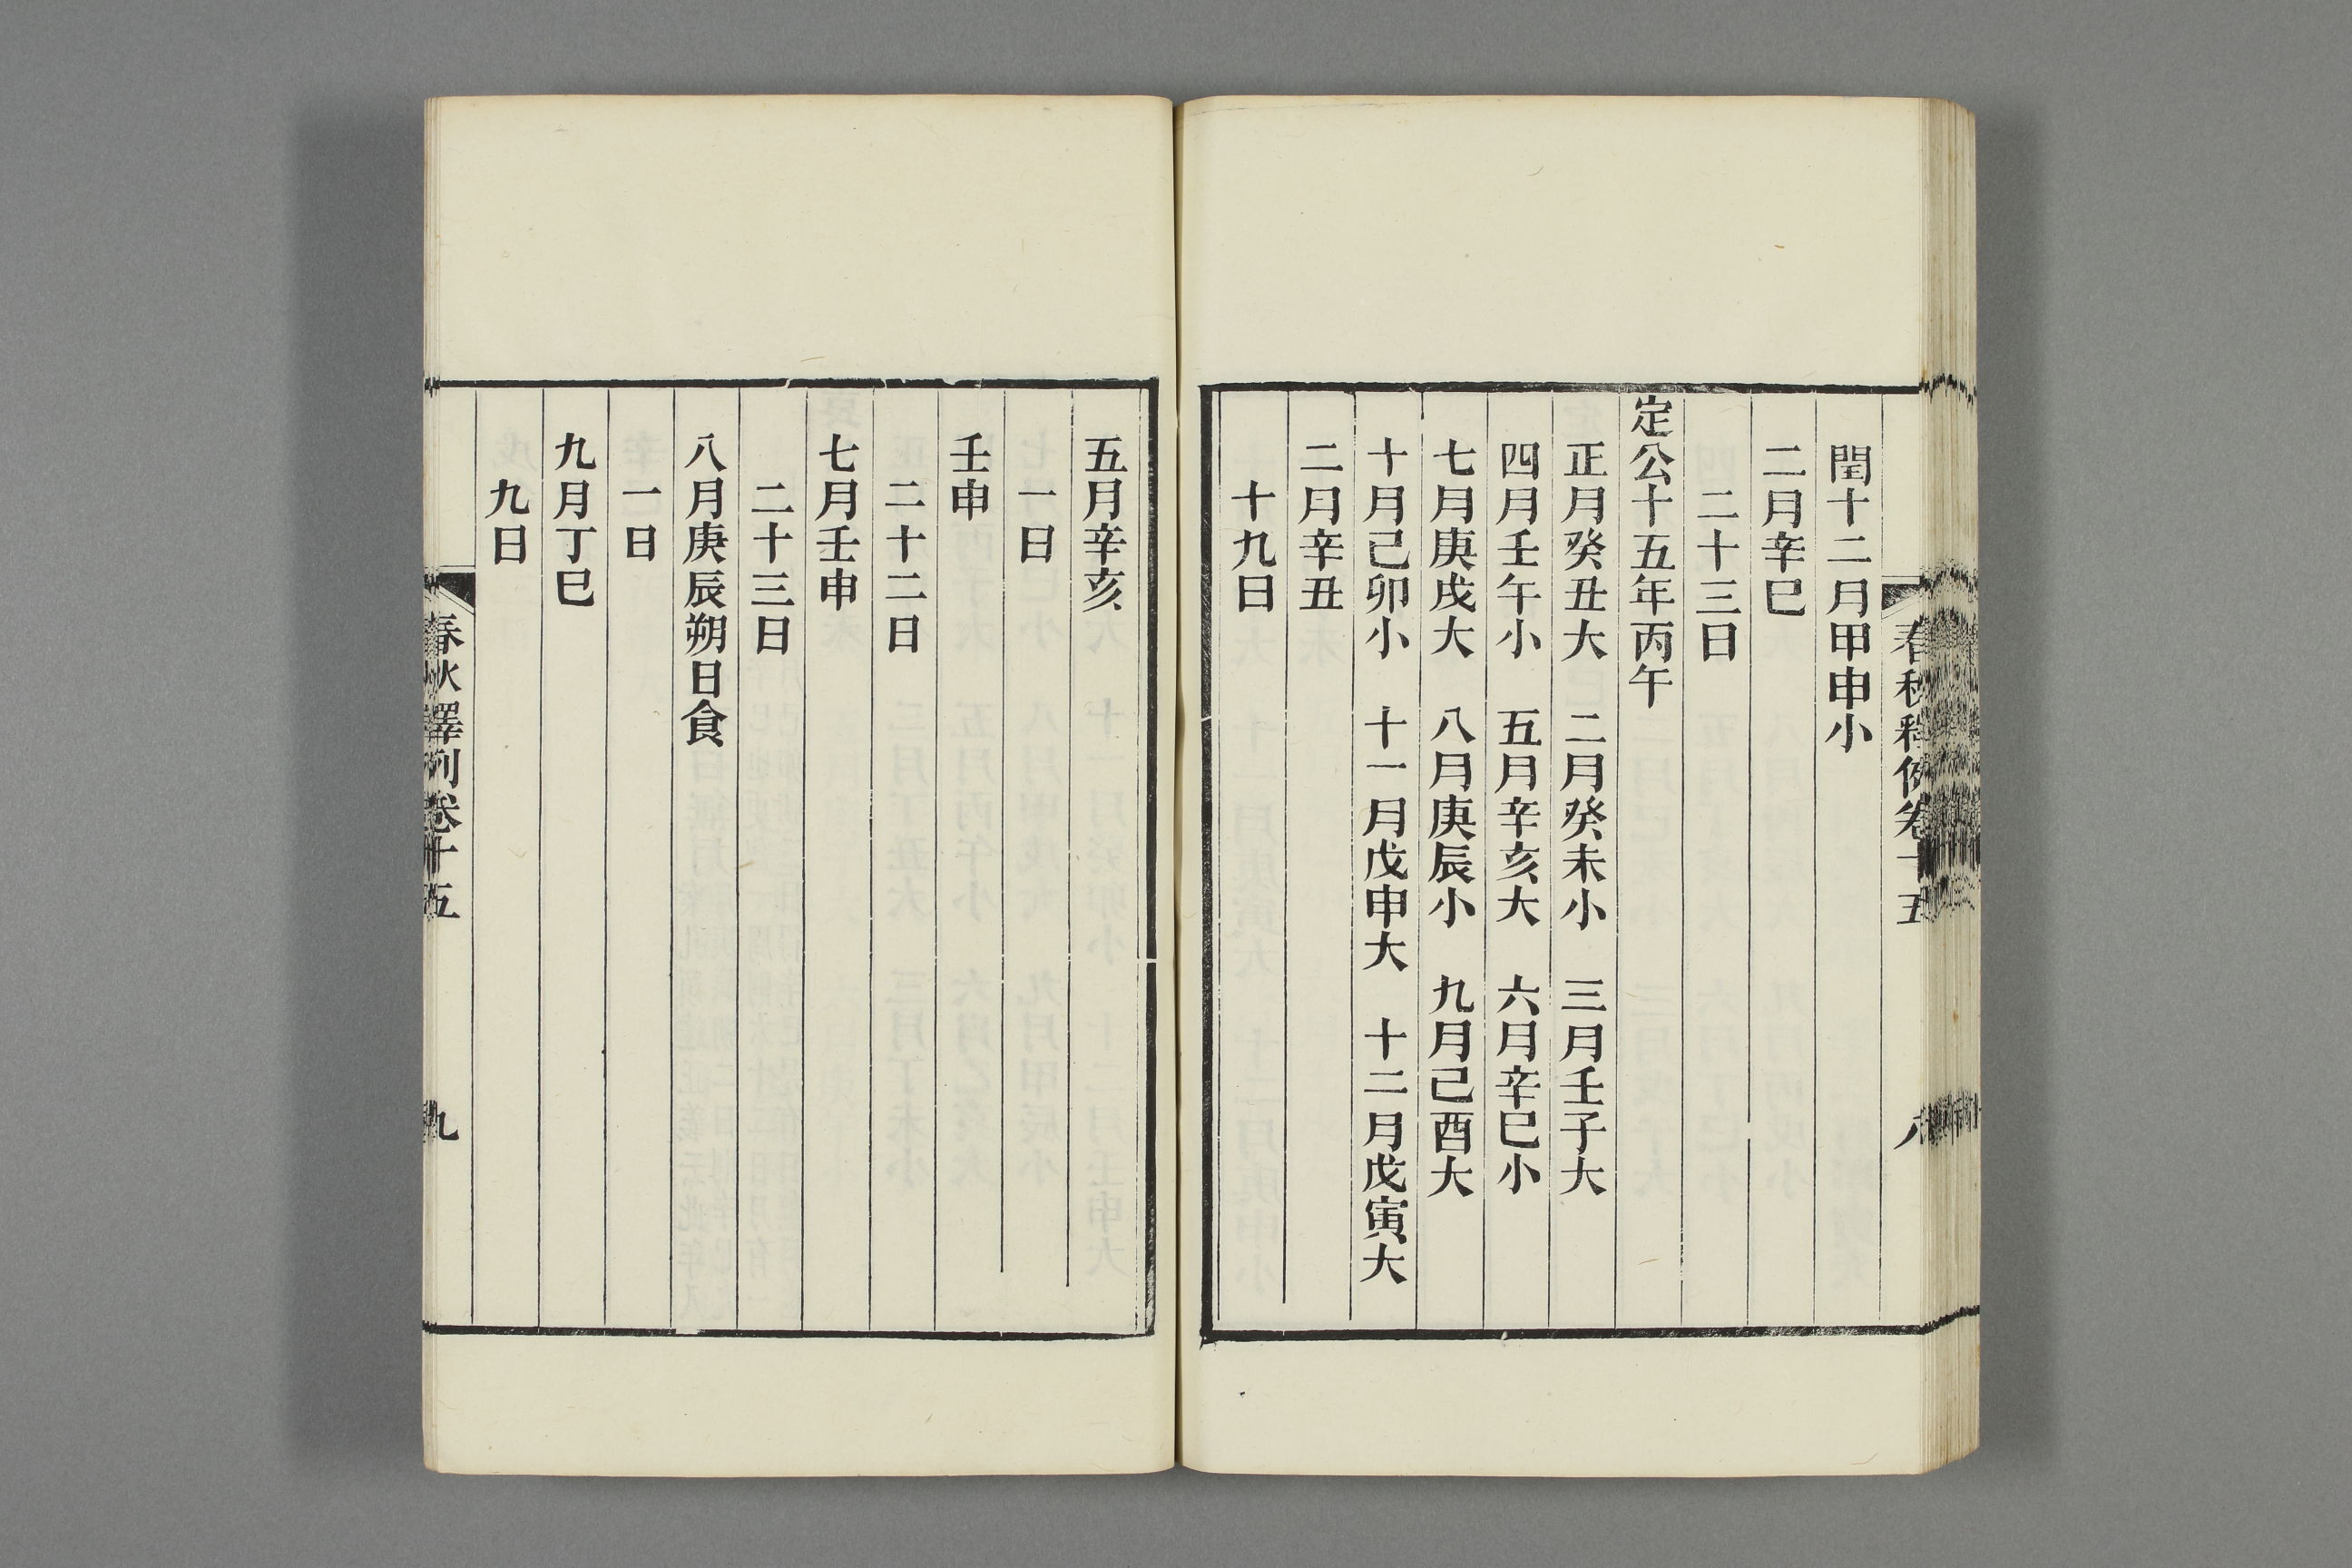 春秋釋例卷十五
八
閏十二月甲申小
二月辛巳
二十三日
定公十五年丙午
正月癸丑大　二月癸未小　三月壬子大
四月壬午小　五月辛亥大　六月辛巳小
七月庚戌大　八月庚辰小　九月己酉大
十月己卯小　十一月戊申大　十二月戊寅大
二月辛丑
十九日
五月辛亥
一日
壬申
二十二日
七月壬申
二十三日
八月庚辰朔日食
一日
九月丁巳
九日
春秋釋例卷十五
九